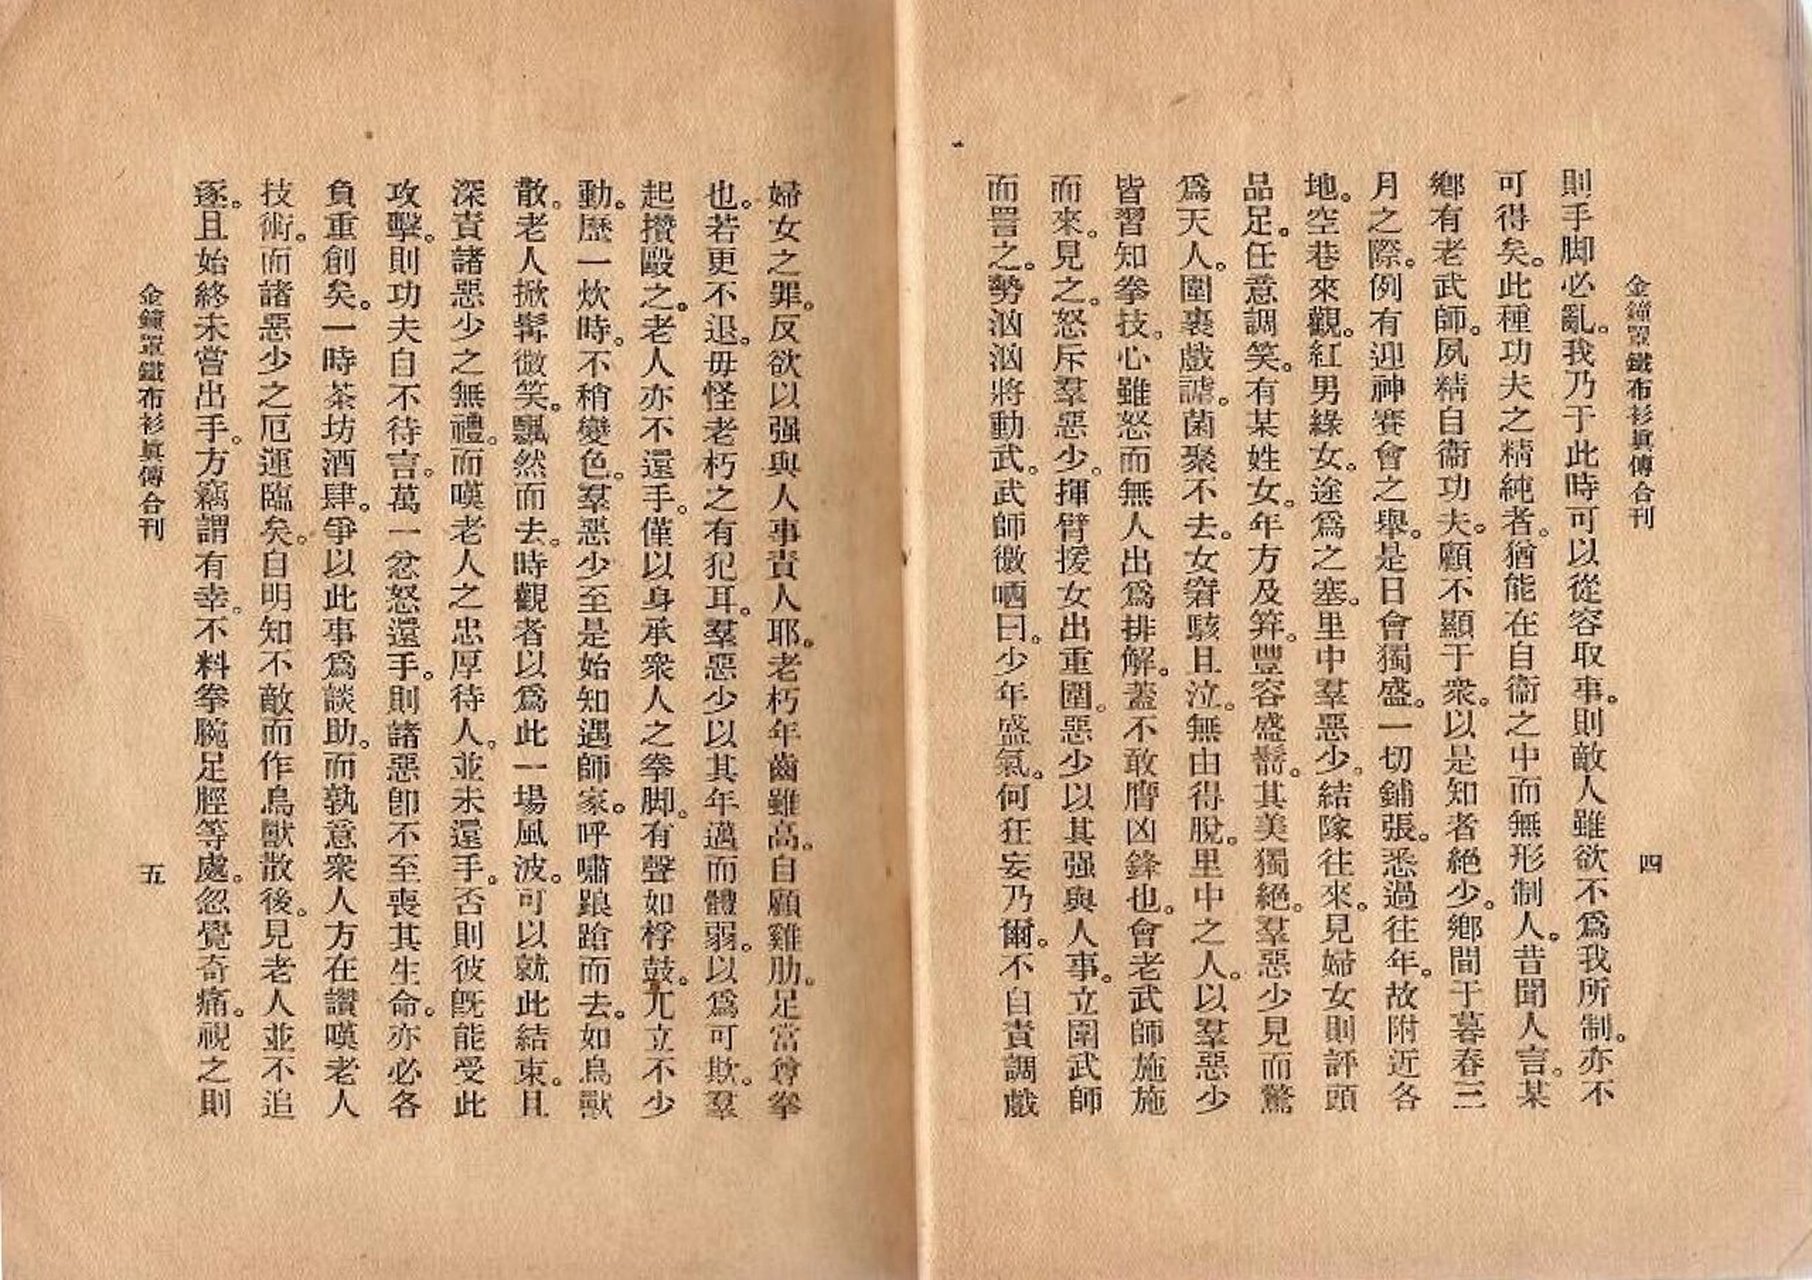 金鐘罩鐵布衫眞傳合刊
四
則手脚必亂。我乃于此時可以從容取事。則敵人雖欲不爲我所制。亦不
可得矣。此種功夫之精純者。猶能在自衞之中而無形制人。昔聞人言。某
鄉有老武師。夙精自衞功夫。顧不顯于衆。以是知者絕少。鄉間于暮春三
月之際。例有迎神賽會之舉。是日會獨盛。一切鋪張。悉過往年。故附近各
地。空巷來觀。紅男綠女。途爲之塞。里中羣惡少。結隊往來。見婦女則評頭
品足。任意調笑。有某姓女。年方及笄。豐容盛鬋。其美獨絕。羣惡少見而驚
爲天人。圍裹戲謔。菌聚不去。女窘駭且泣。無由得脫。里中之人。以羣惡少
皆習知拳技。心雖怒而無人出爲排解。蓋不敢膺凶鋒也。會老武師施施
而來。見之。怒斥羣惡少。揮臂援女出重圍。惡少以其强與人事。立圍武師
而詈之。勢洶洶將動武。武師微哂曰。少年盛氣。何狂妄乃爾。不自責調戲
婦女之罪。反欲以强與人事責人耶。老朽年齒雖高。自顧雞肋。足當尊拳
也。若更不退。毋怪老朽之有犯耳。羣惡少以其年邁而體弱。以爲可欺。羣
起攢毆之。老人亦不還手。僅以身承衆人之拳脚。有聲如桴鼓。兀立不少
動。歷一炊時。不稍變色。羣惡少至是始知遇師家。呼嘯踉蹌而去。如鳥獸
散。老人掀髯微笑。飄然而去。時觀者以爲此一場風波。可以就此結束。且
深責諸惡少之無禮。而嘆老人之忠厚待人。並未還手。否則彼既能受此
攻擊。則功夫自不待言。萬一忿怒還手。則諸惡卽不至喪其生命。亦必各
負重創矣。一時茶坊酒肆。爭以此事爲談助。而孰意衆人方在讚嘆老人
技術。而諸惡少之厄運臨矣。自明知不敵而作鳥獸散後。見老人並不追
逐。且始終未嘗出手。方竊謂有幸。不料拳腕足脛等處。忽覺奇痛。視之則
金鐘罩鐵布衫眞傳合刊
五